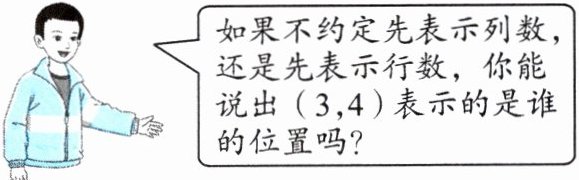 如果不约定先表示列数，
还是先表示行数，你能
说出（3,4）表示的是谁
的位置吗？